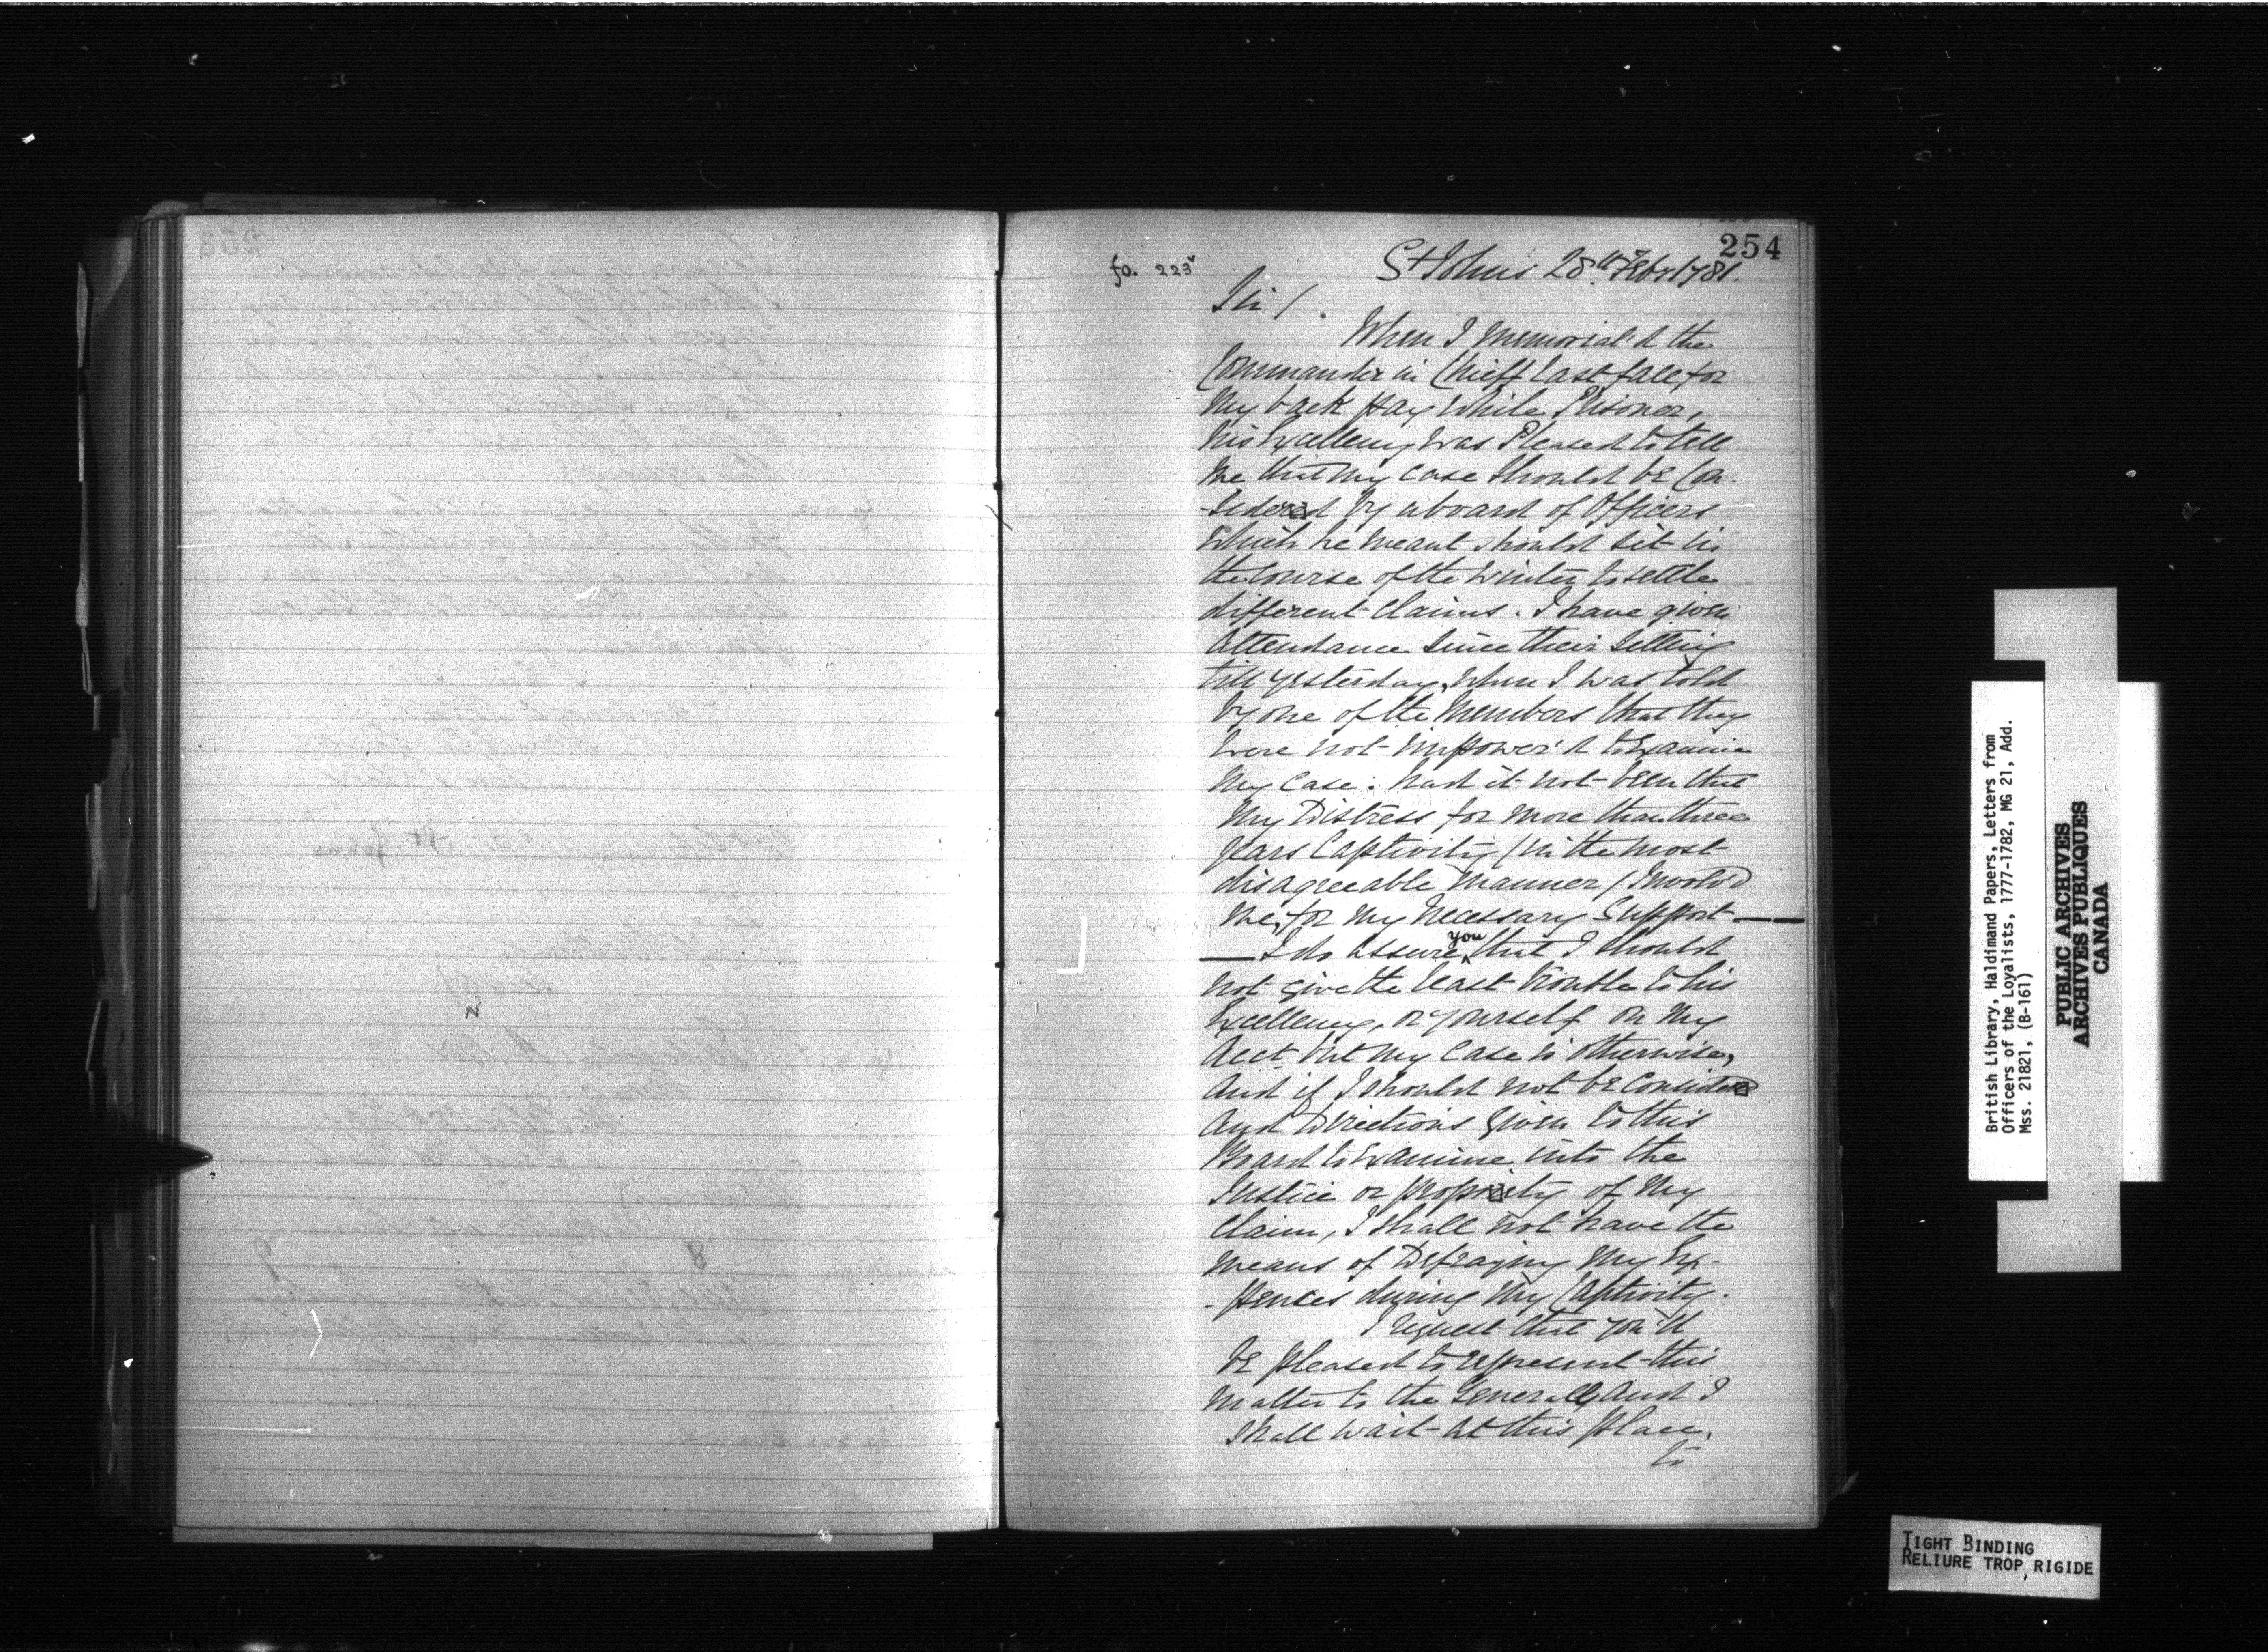 254
fo. 223v
St Johns 28th Febr 1781.
Sir /.
When I Memorial'd the
Commander in Chieff Last fall for
My back pay While Prisoner,
his Excellency was Pleased to tell
Me that my case Should be Con-
-sidered by aboard of Officers
Which he meant should sit in
the Course of the Winter to settle
different Claims. I have given
Attendance Since their Setting
till yesterday, When I was told
by one of the Members that they
were not Impower'd to Examine
My Case. had it not been that
My Distress for more than three
years Captivity (in the most
disagreeable manner) Involv'd
me, for My Necessary Support—
— I do assure you that I should
not give the least trouble to his
Excellency, or yourself on my
Acct but my Case is otherwise,
And if I should not be Considered
And Directions given to this
Board to Examine into the
Justice or propriety of My
Claim, I shall not have the
means of Defraying My Ex-
-pences during My Captivity.
I request that you'll
be pleased to represent this
Matter to the Generall, And I
Shall wait at this place,
to
British Library, Haldimand Papers, Letters from
Officers of the Loyalists, 1777-1782, MG 21, Add.
Mss. 21821, (B-161)
PUBLIC ARCHIVES
ARCHIVES PUBLIQUES
CANADA
TIGHT BINDING
RELIURE TROP RIGIDE